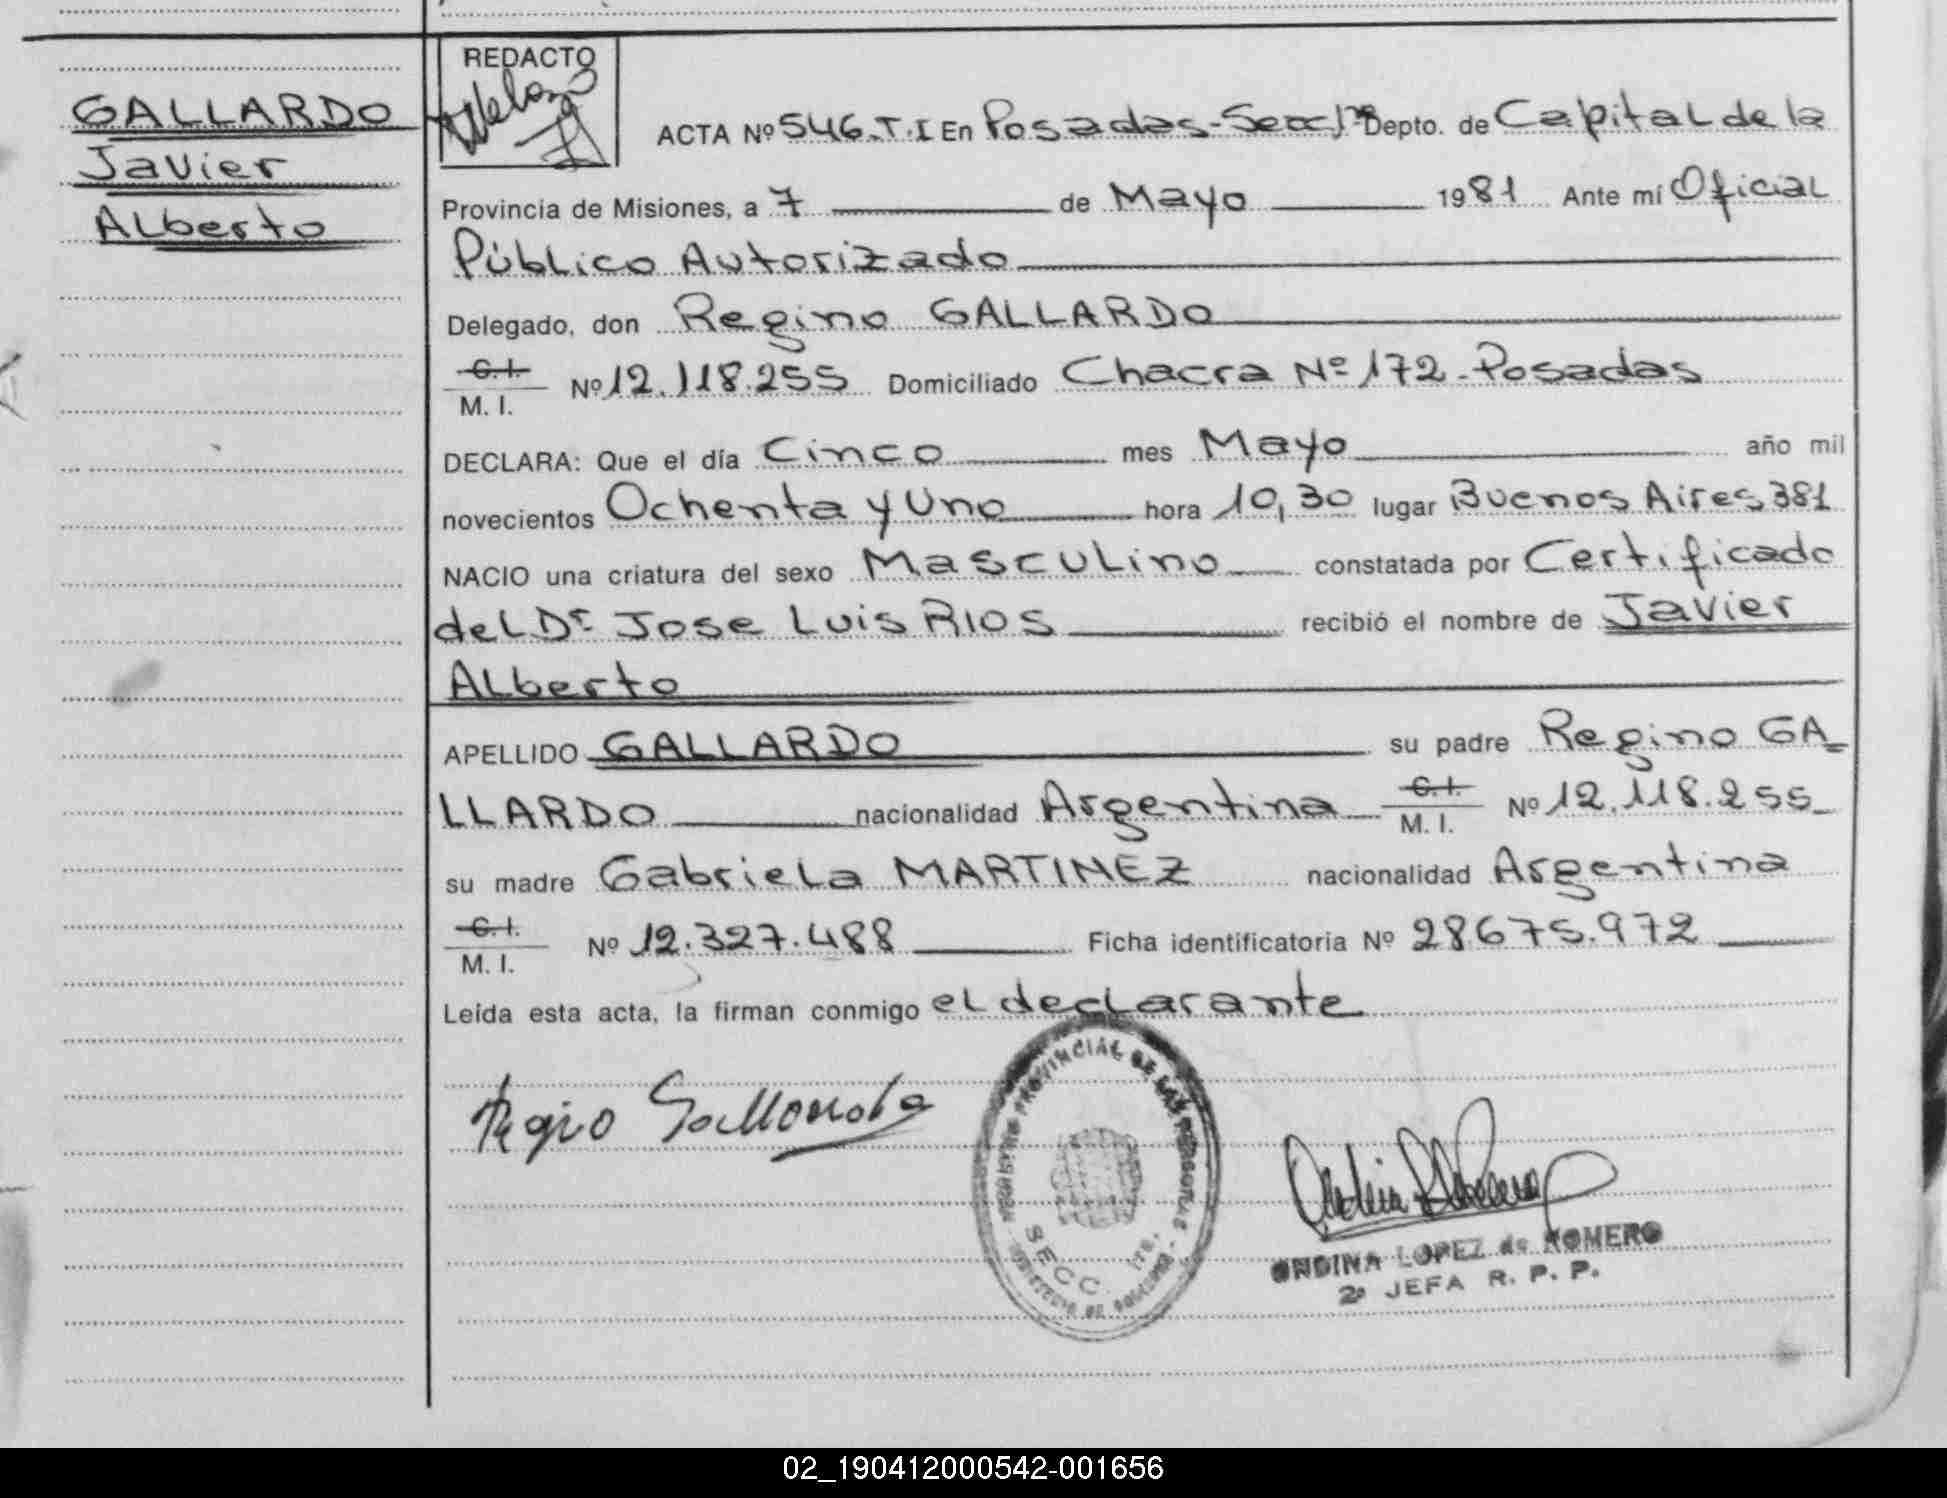 GALLARDO
Javier
Alberto
REDACTO
ACTA Nº 546.T.I En Posadas-Secc 1ra Depto. de Capital de la
Provincia de Misiones, a 7 de Mayo 1981 Ante mí Oficial
Público Autorizado
Delegado, don Regino GALLARDO
C.I.
M.I. Nº 12.118.255 Domiciliado Chacra Nº 172-Posadas
DECLARA: Que el día Cinco mes Mayo año mil
novecientos Ochenta y Uno hora 10,30 lugar Buenos Aires 381
NACIO una criatura del sexo Masculino constatada por Certificado
del Dr. Jose Luis RIOS recibió el nombre de Javier
Alberto
APELLIDO GALLARDO su padre Regino GA-
LLARDO nacionalidad Argentina C.I. M.I. Nº 12.118.255
su madre Gabriela MARTINEZ nacionalidad Argentina
C.I.
M.I. Nº 12.327.488 Ficha identificatoria Nº 28.675.972
Leída esta acta, la firman conmigo el declarante
Regino Gallardo
REGISTRO PROVINCIAL DE LAS PERSONAS
SECC. 1ra.
MINISTERIO DE GOBIERNO
ONDINA LOPEZ de ROMERO
2ª JEFA R. P. P.
02_190412000542-001656